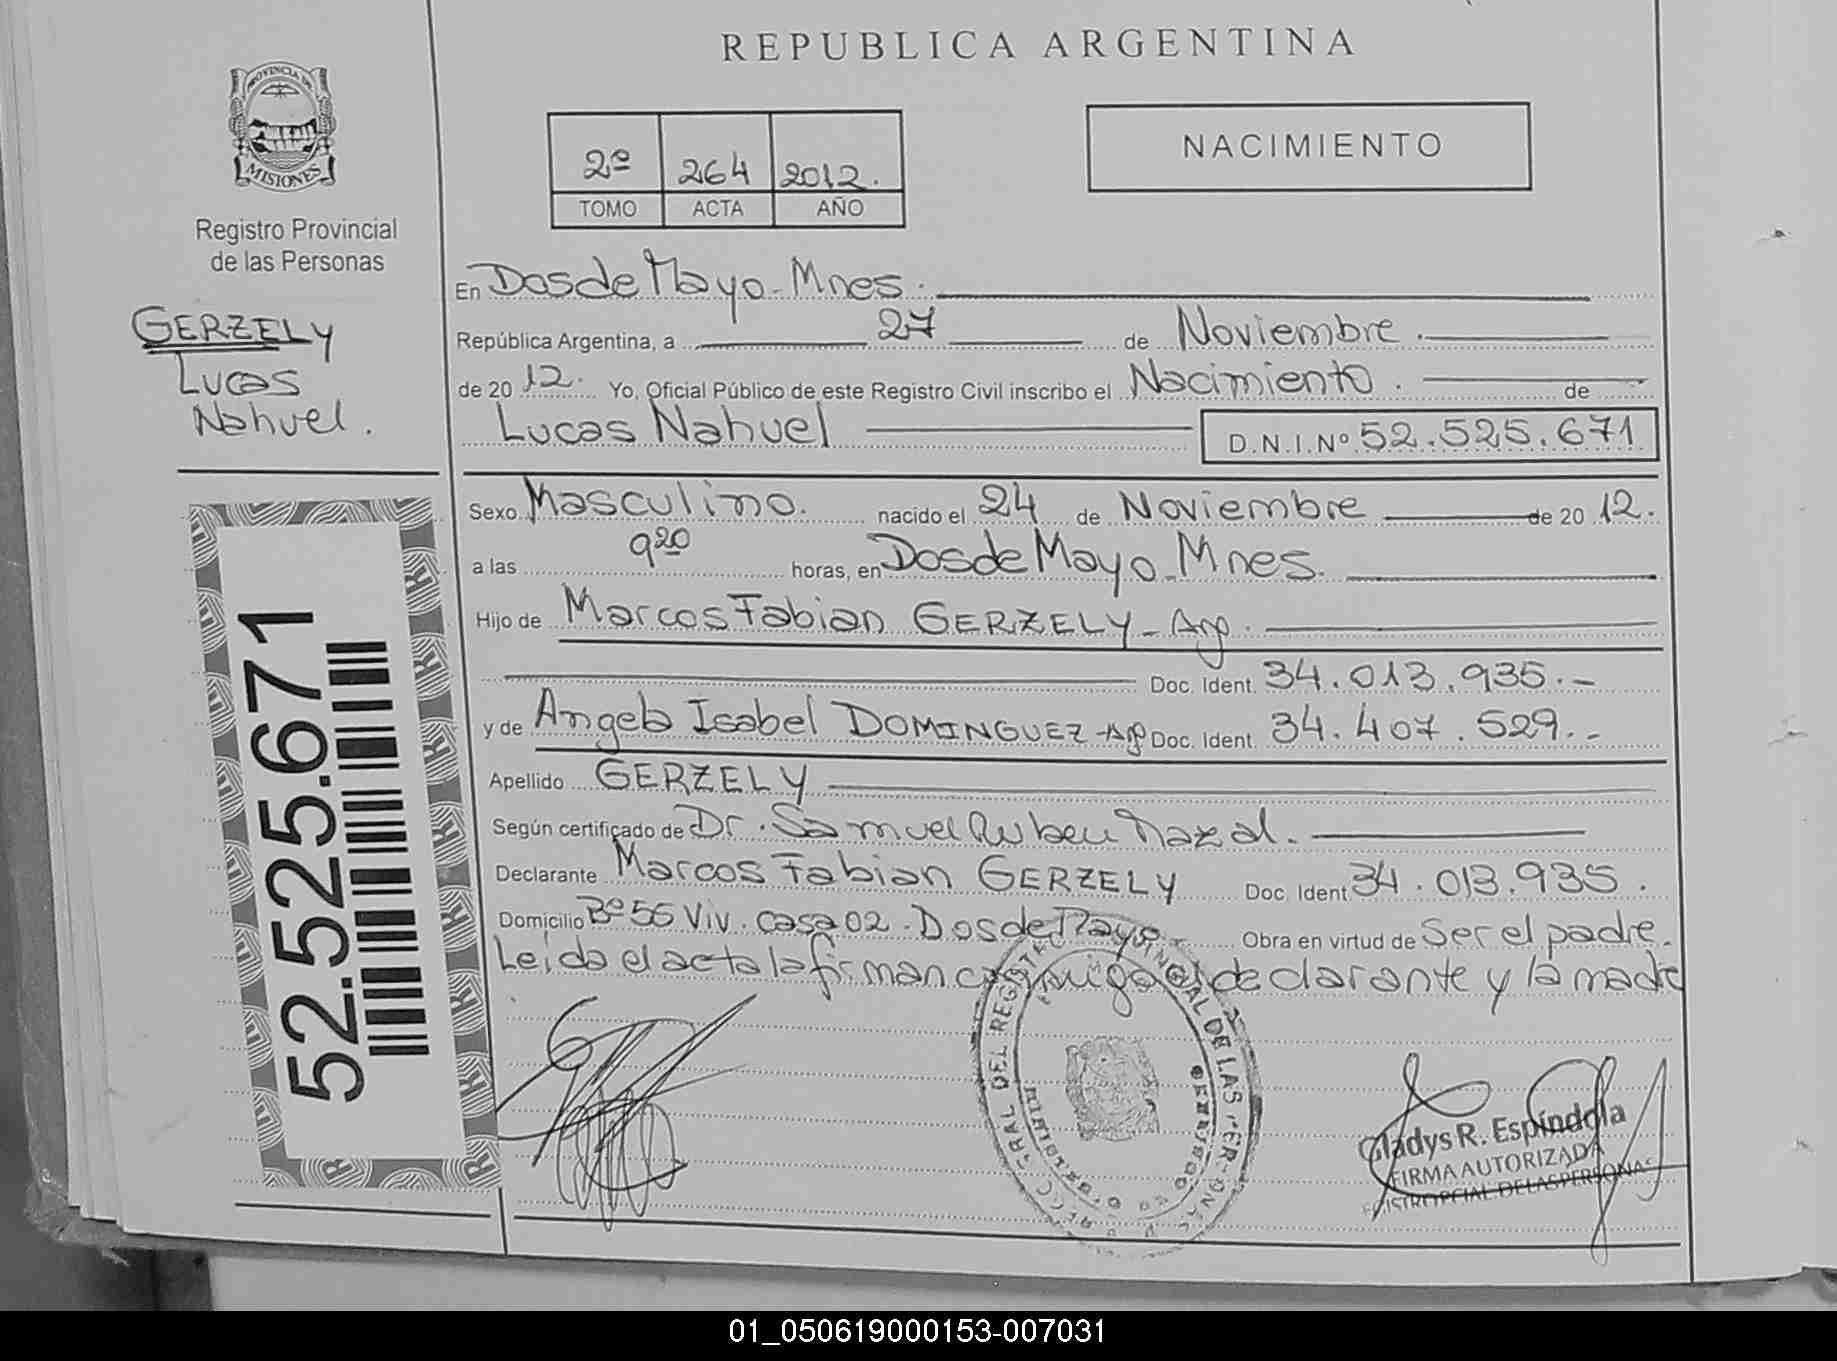 REPUBLICA ARGENTINA
PROVINCIA DE
MISIONES
Registro Provincial
de las Personas
GERZELY
Lucas
Nahuel.
2º 264 2012.
TOMO ACTA AÑO
NACIMIENTO
En Dos de Mayo - Mnes.
República Argentina, a 27 de Noviembre
de 20 12. Yo, Oficial Público de este Registro Civil inscribo el Nacimiento. de
Lucas Nahuel D.N.I.Nº 52.525.671
Sexo Masculino. nacido el 24 de Noviembre de 20 12.
a las 9 20 horas, en Dos de Mayo - Mnes.
Hijo de Marcos Fabian GERZELY - Arg.
Doc. Ident. 34.013.935.-
y de Angela Isabel DOMINGUEZ - Arg Doc. Ident. 34.407.529.-
Apellido GERZELY
Según certificado de Dr. Samuel Ruben Nazal.
Declarante Marcos Fabian GERZELY Doc. Ident 34.013.935.
Domicilio Bº 56 Viv. Casa 02 - Dos de Mayo - Obra en virtud de Ser el padre.
Leida el acta la firman conmigo el declarante y la madre
52.525.671
Gladys R. Espíndola
FIRMA AUTORIZADA
DE LAS PERSONAS
01_050619000153-007031